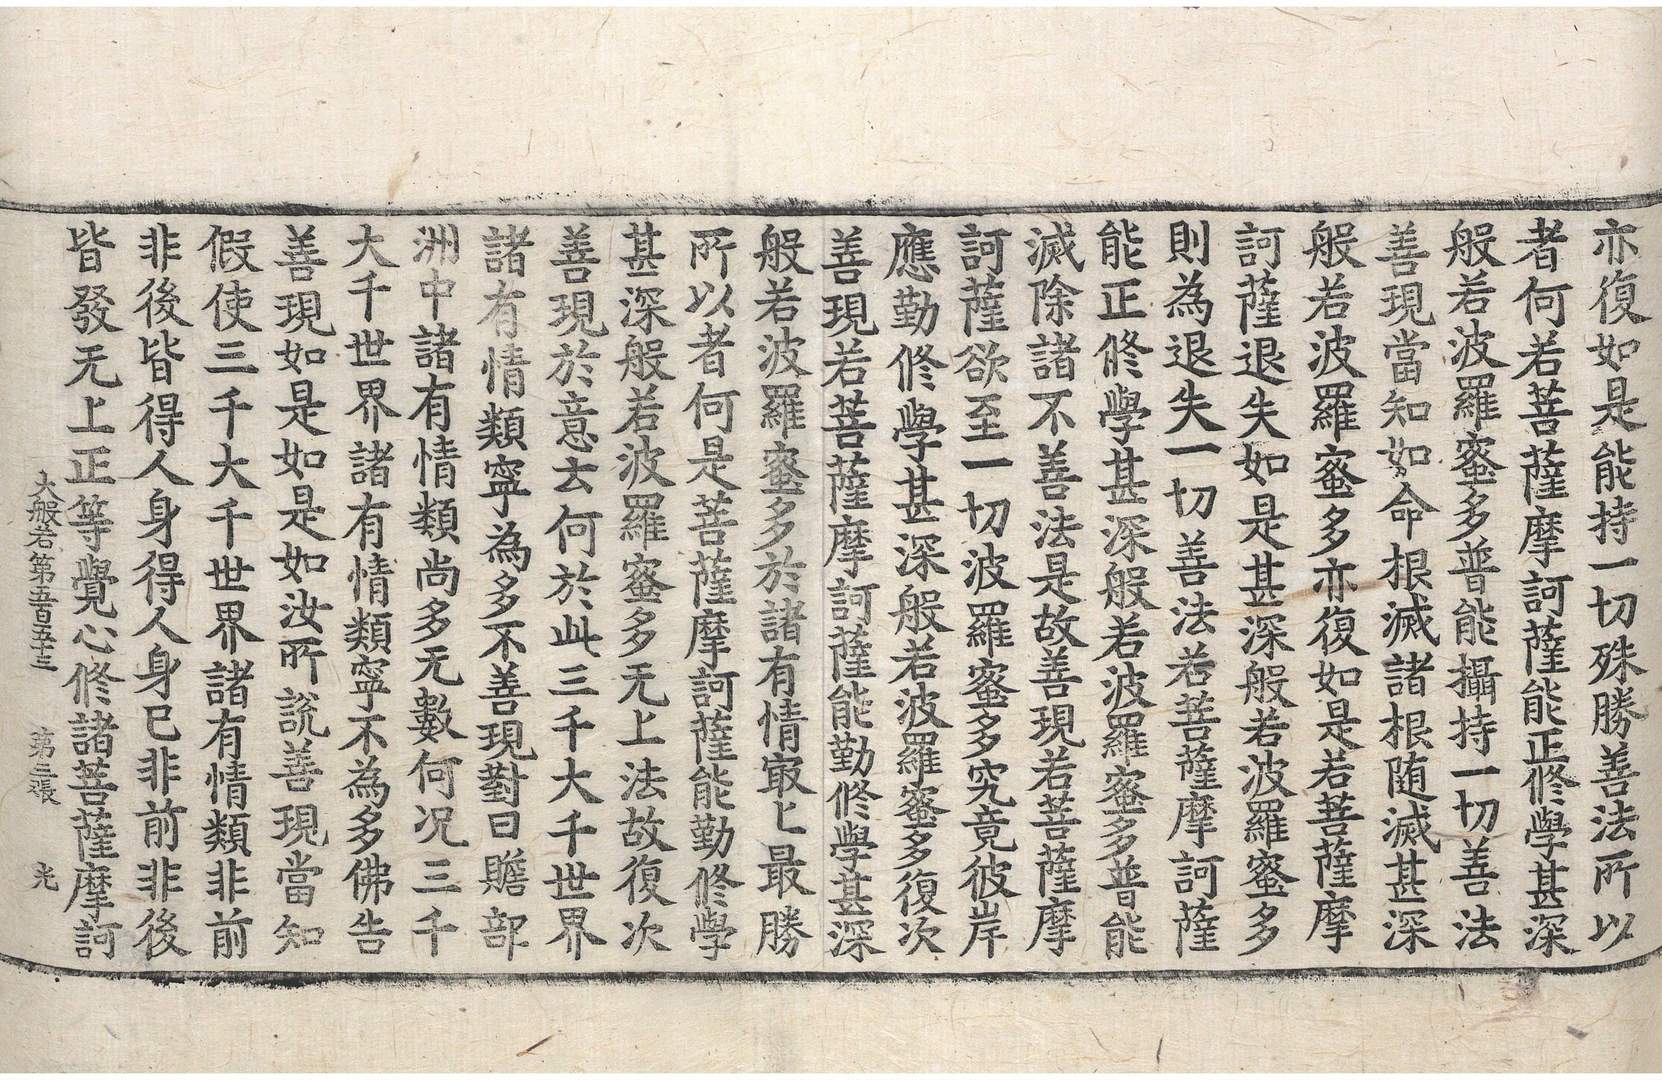 亦復如是能持一切殊勝善法所以
者何若菩薩摩訶薩能正修學甚深
般若波羅蜜多普能攝持一切善法
善現當知如命根滅諸根随滅甚深
般若波羅蜜多亦復如是若菩薩摩
訶薩退失如是甚深般若波羅蜜多
則為退失一切善法若菩薩摩訶薩
能正修學甚深般若波羅蜜多普能
滅除諸不善法是故善現若菩薩摩
訶薩欲至一切波羅蜜多究竟彼岸
應勤修學甚深般若波羅蜜多復次
善現若菩薩摩訶薩能勤修學甚深
般若波羅蜜多於諸有情㝡上最勝
所以者何是菩薩摩訶薩能勤修學
甚深般若波羅蜜多无上法故復次
善現於意云何於此三千大千世界
諸有情類寧為多不善現對曰贍部
洲中諸有情類尚多无數何况三千
大千世界諸有情類寧不為多佛告
善現如是如是如汝所說善現當知
假使三千大千世界諸有情類非前
非後皆得人身得人身已非前非後
皆發无上正等覺心修諸菩薩摩訶
大般若第五百五十三 第二張 光